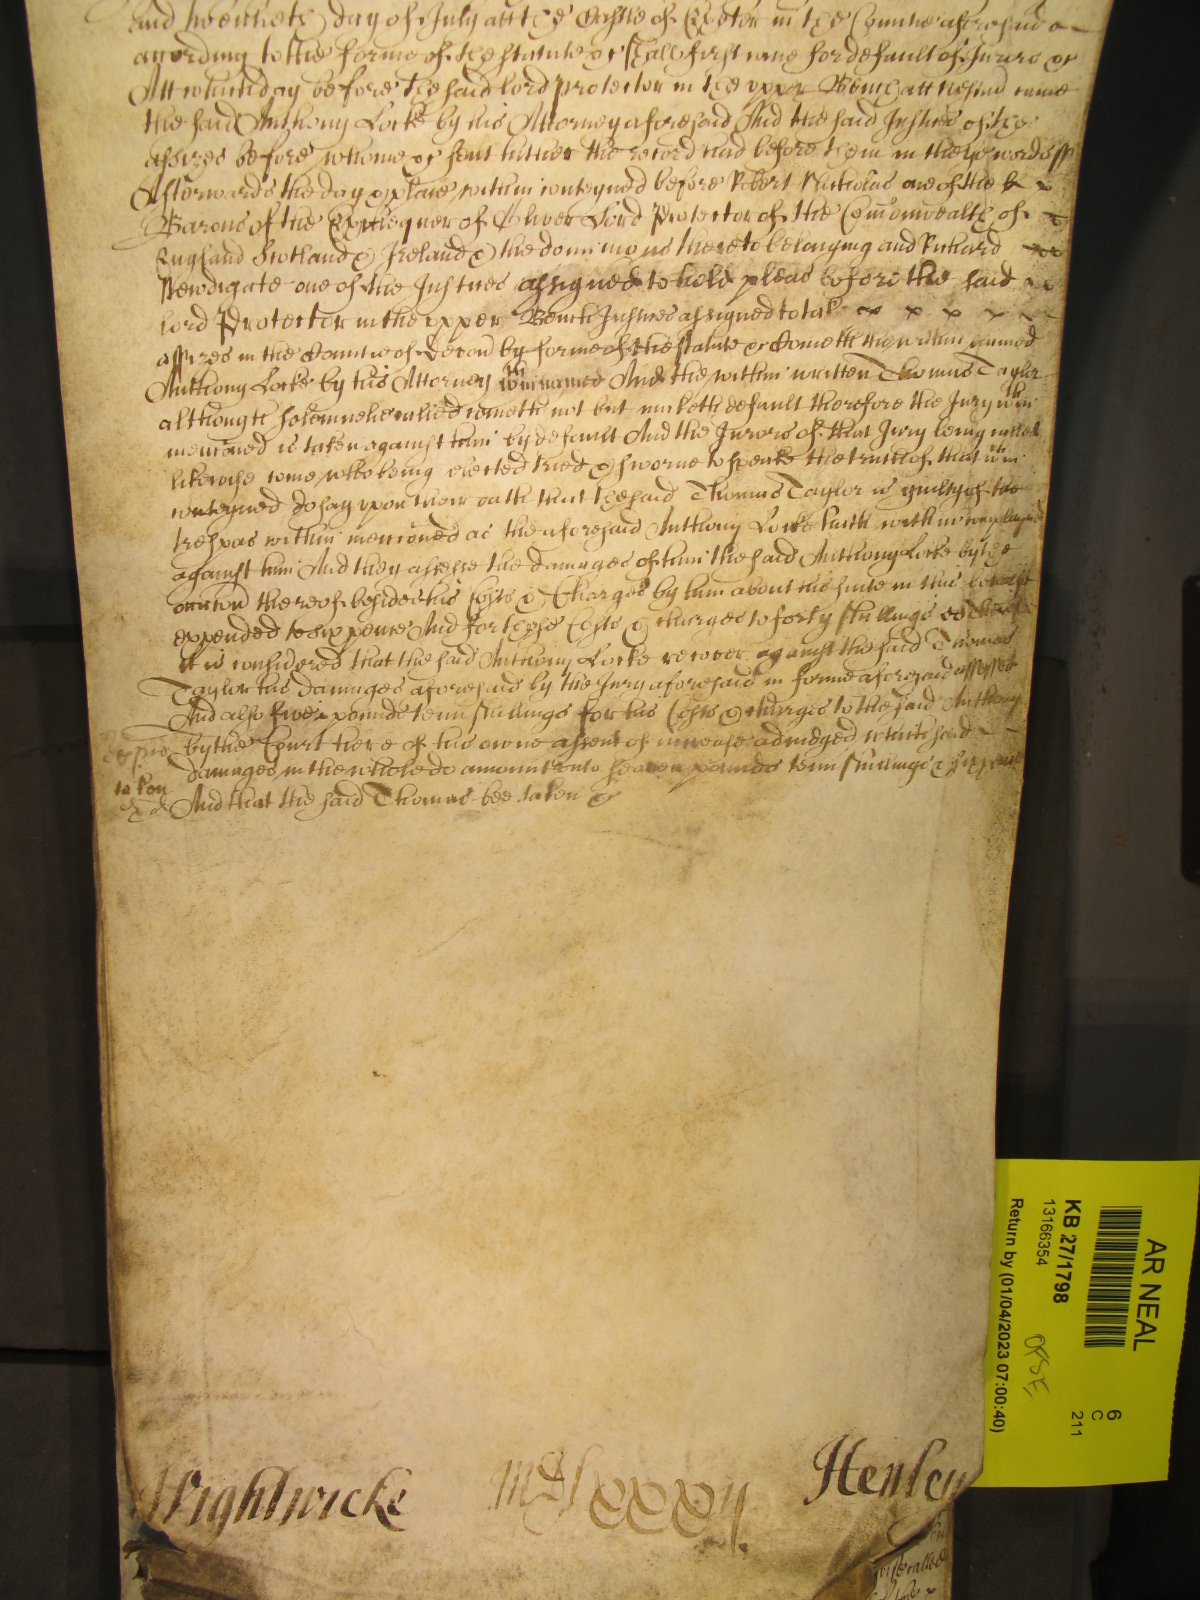 and twentieth day of July att the Castle of Exeter in the Countie aforesaid
according to the forme of the statute &c shall first come for default of Jurors &c
Att which day before the said lord Protector in the upper Bench att came
the said Anthony Locke by his Attorney aforesaid And the said Justices of the
assizes before whome &c sent hither the record had before them in these words ss
Afterwards the day & place within conteyned before Robert Nicholas one of the
Barons of the Exchequer of Oliver Lord Protector of the Comonwealth of
England Scotland & Ireland & the dominions thereto belonging and Richard
Newdigate one of the Justices assigned to hold pleas before the said
lord Protector in the upper Bench Justices assigned to take
assizes in the Countie of Devon by forme of the statute &c Cometh the within named
Anthony Locke by his Attorney wthin named And the within written Thomas Taylor
although solemnelie called cometh not but maketh default therefore the Jury wthin
mentioned is taken against him by default And the Jurors of that Jury being called
likewise come who being elected tried & sworne to speake the truth of that wthin
conteyned do say upon their oath that the said Thomas Taylor is guilty of the
trespas within mentioned as the aforesaid Anthony Locke hath within complayned
against him And they assesse the damages of him the said Anthony Locke by the
occasion thereof besides his Costs & Charges by him about his suite in this behalf
expended to six pence And for those Costs & charges to forty shillings
It is considered that the said Anthony Locke recover against the said Thomas
Taylor his damages aforesaid by the Jury aforesaid in forme aforesaid assessed
And also five pounds tenn shillings for his Costs & charges to the said Anthony
by the Court here of his owne assent of increase adiudged which said
damages in the whole do amount unto seaven pounds tenn shillings & six pence
taken
And that the said Thomas bee taken &c
Wightwicke
Henley
AR NEAL
KB 27/1798
13166354
Return by (01/04/2023 07:00:40)
6
C
211